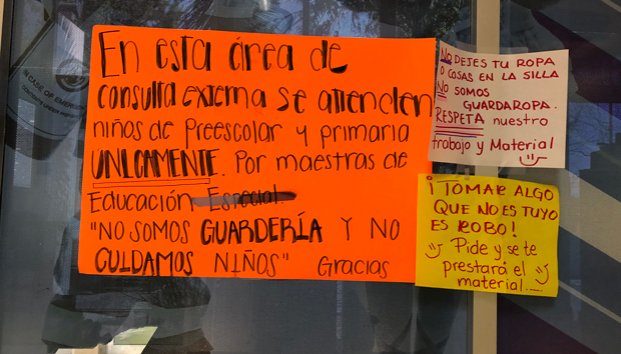 En esta área de
consulta externa se atienden
niños de Preescolar y primaria
UNICAMENTE. Por maestras de
Educación Especial
"NO SOMOS GUARDERÍA Y NO
CUIDAMOS NIÑOS" Gracias
NO DEJES TU ROPA
O COSAS EN LA SILLA
NO SOMOS
GUARDAROPA.
RESPETA nuestro
trabajo y Material
¡TOMAR ALGO
QUE NO ES TUYO
ES ROBO!
Pide y se te
prestará el
material....
IN CASE OF EMERGENCY